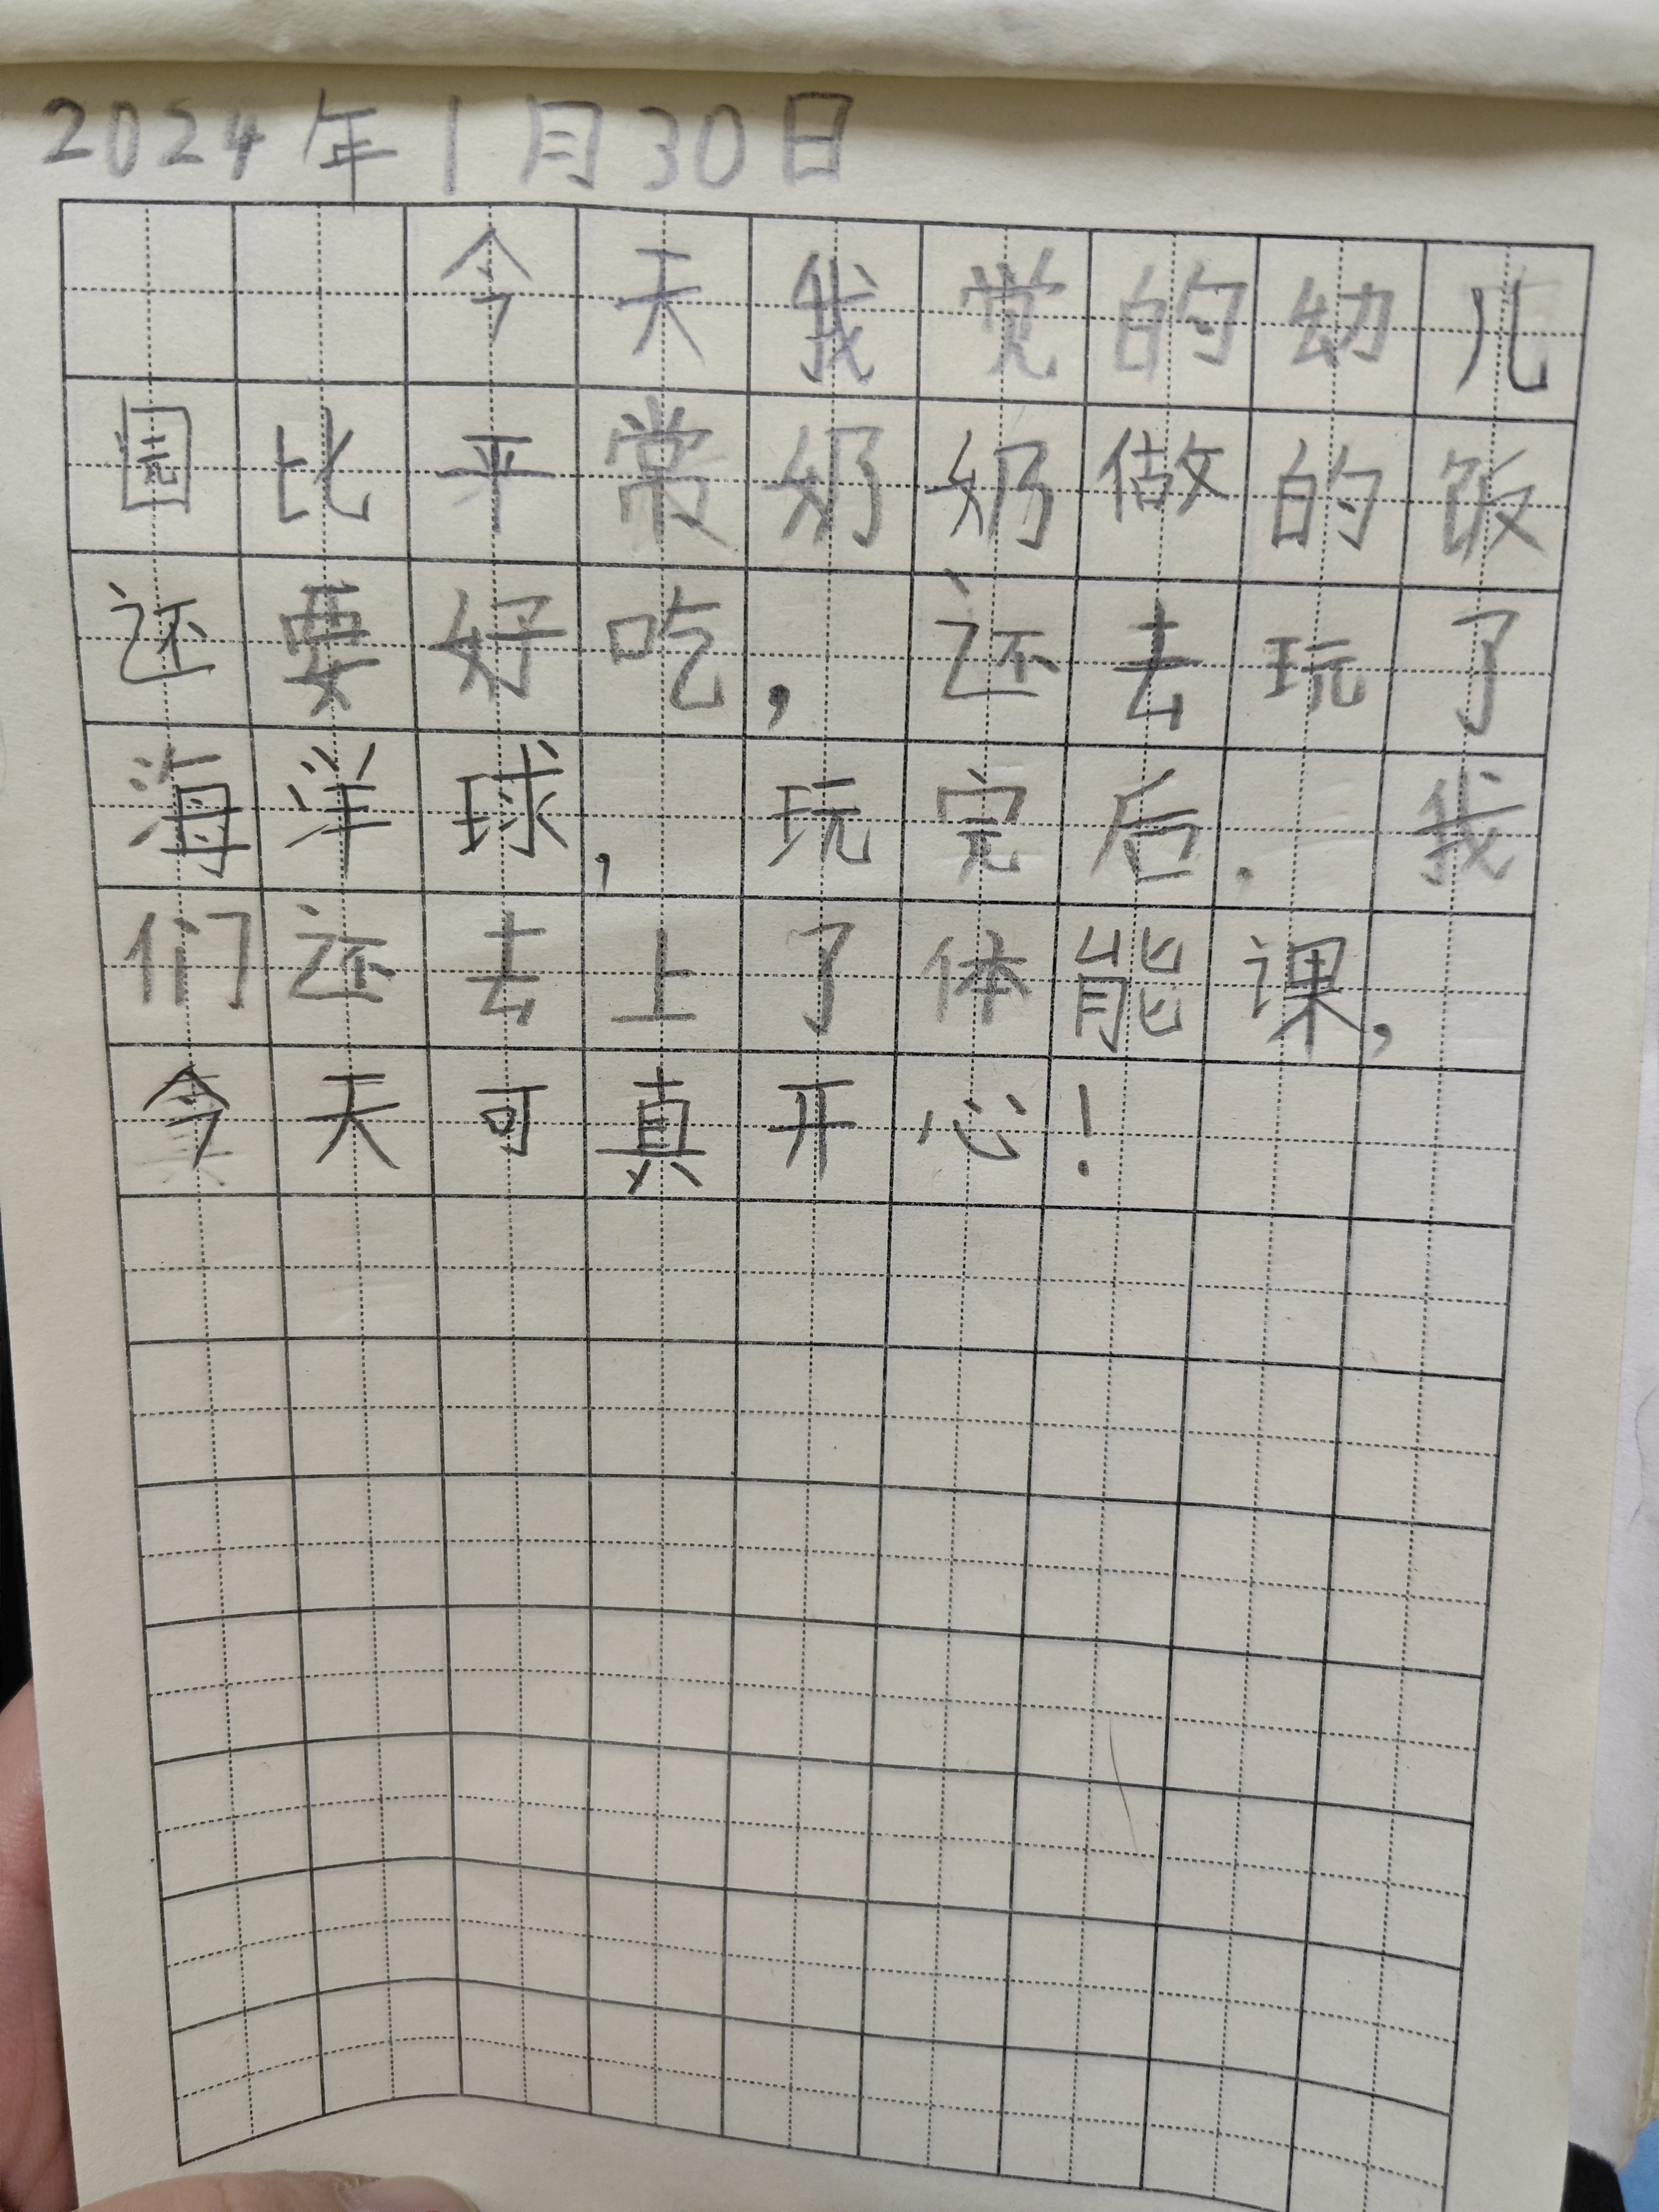 2024年1月30日
今天我觉的幼儿
园比平常奶奶做的饭
还要好吃，还去玩了
海洋球，玩完后．我
们还去上了体能课，
今天可真开心！